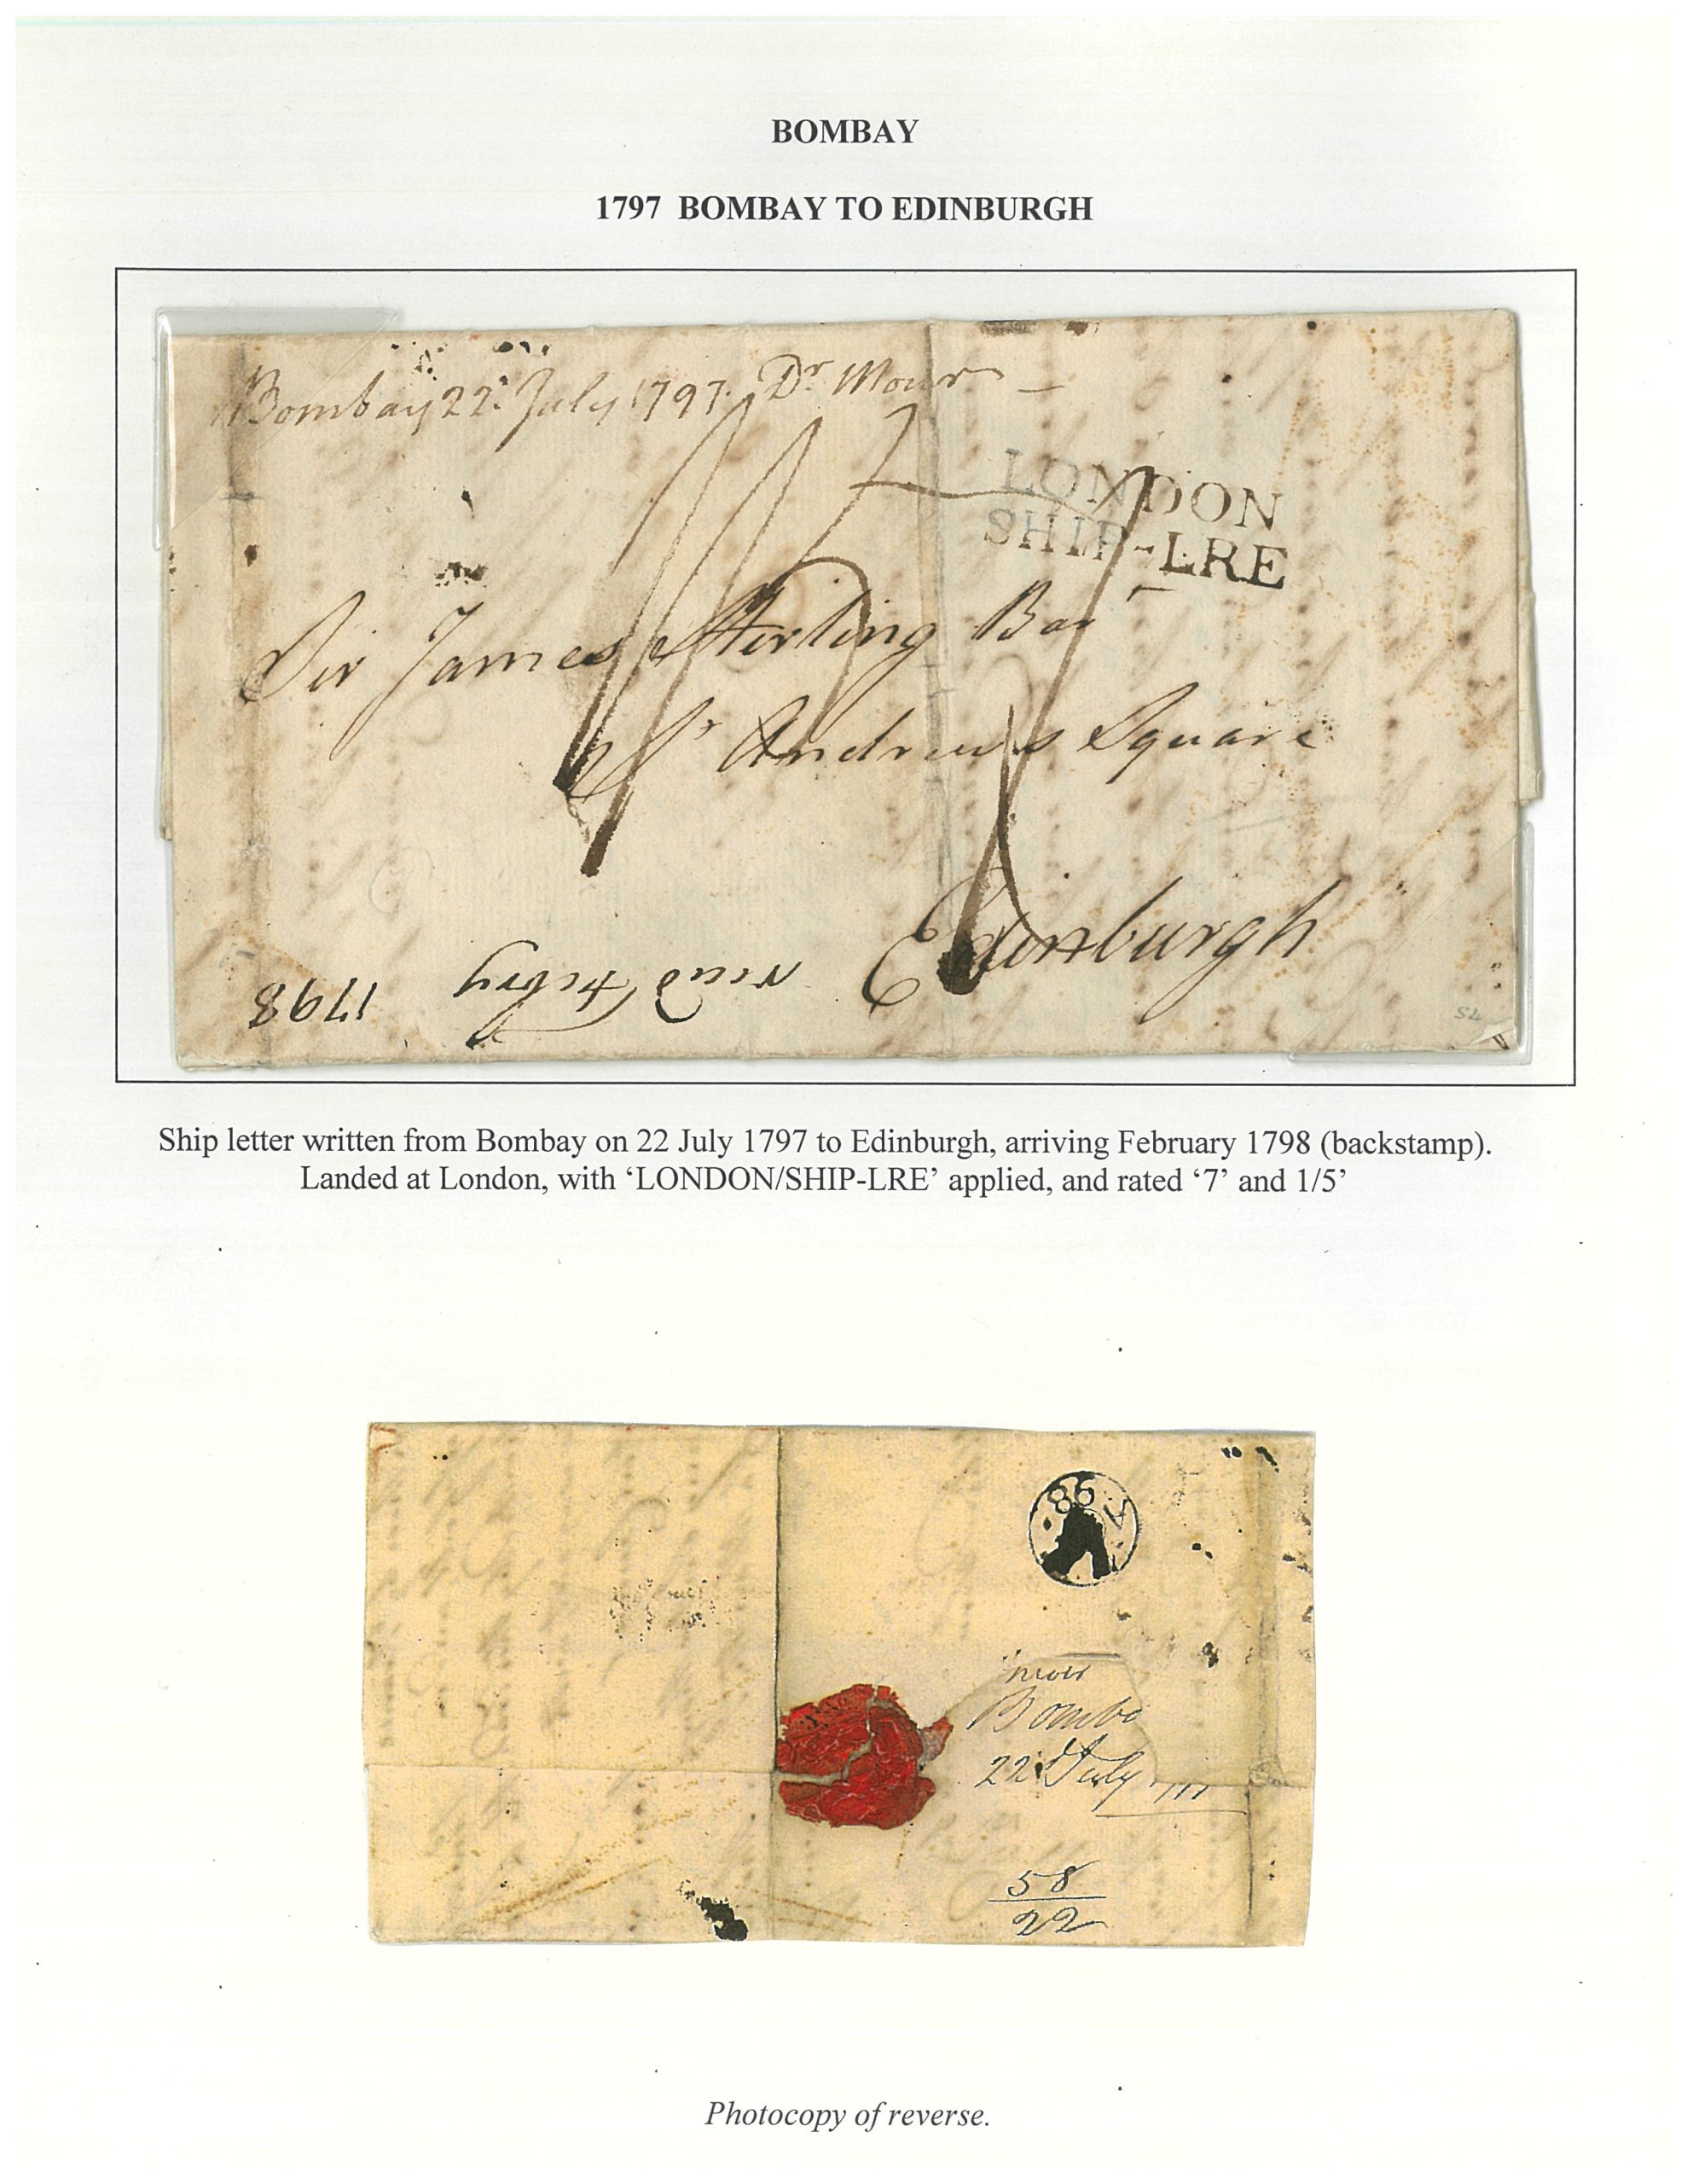 BOMBAY
1797 BOMBAY TO EDINBURGH
Bombay 22d July 1797. Dr Mour
LONDON
SHIP-LRE
Sir James Sterling Bart
St Andrews Square
Edinburgh
recd Febry 1798
54
Ship letter written from Bombay on 22 July 1797 to Edinburgh, arriving February 1798 (backstamp).
Landed at London, with ‘LONDON/SHIP-LRE’ applied, and rated ‘7’ and 1/5’
98
Bomba
22d July
58
22
Photocopy of reverse.